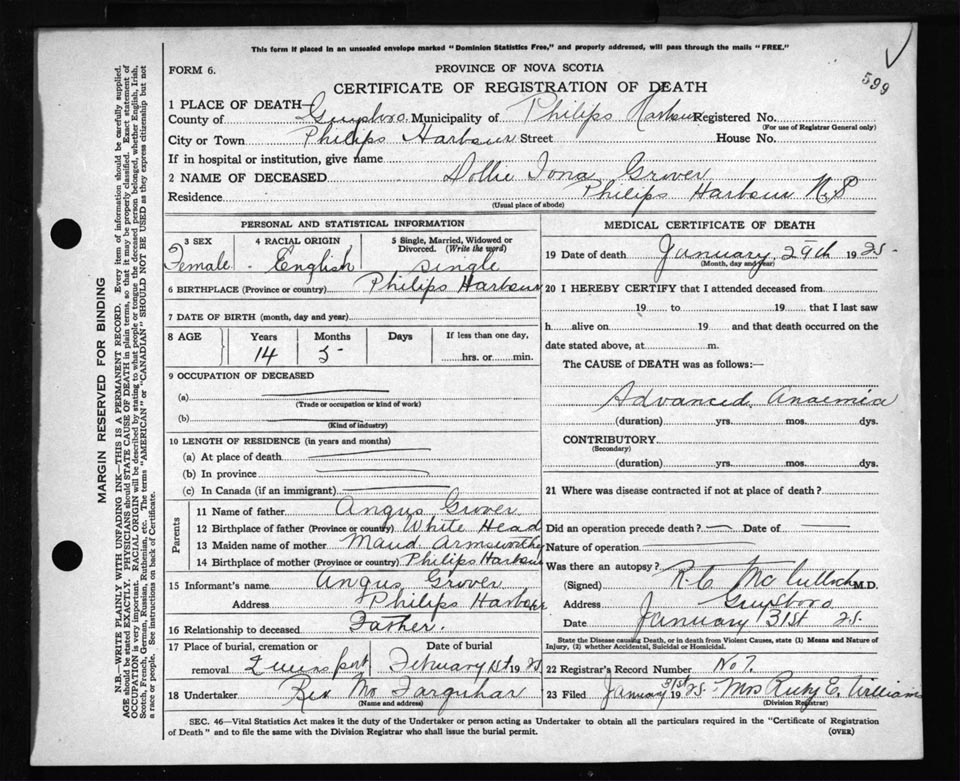 This form if placed in an unsealed envelope marked "Dominion Statistics Free," and properly addressed, will pass through the mails "FREE."
FORM 6.
PROVINCE OF NOVA SCOTIA
599
CERTIFICATE OF REGISTRATION OF DEATH
1 PLACE OF DEATH—
County of Guysboro Municipality of Philips Harbour Registered No.
(For use of Registrar General only)
City or Town Philips Harbour Street House No.
If in hospital or institution, give name
2 NAME OF DECEASED Dollie Iona Grover
Residence Philips Harbour N.S
(Usual place of abode)
PERSONAL AND STATISTICAL INFORMATION
3 SEX 4 RACIAL ORIGIN 5 Single, Married, Widowed or Divorced. (Write the word)
Female - English single
6 BIRTHPLACE (Province or country) Philips Harbour
7 DATE OF BIRTH (month, day and year)
8 AGE Years Months Days If less than one day,
14 5 hrs. or min.
9 OCCUPATION OF DECEASED
(a)
(Trade or occupation or kind of work)
(b)
(Kind of industry)
10 LENGTH OF RESIDENCE (in years and months)
(a) At place of death
(b) In province
(c) In Canada (if an immigrant)
Parents
11 Name of father Angus Grover
12 Birthplace of father (Province or country) White Head
13 Maiden name of mother Maud Armsworthy
14 Birthplace of mother (Province or country) Philips Harbour
15 Informant's name Angus Grover
Address Philips Harbour
16 Relationship to deceased Father.
17 Place of burial, cremation or removal Date of burial
Queensport February 1st 1925
18 Undertaker Rev Mc Farquhar
(Name and address)
MEDICAL CERTIFICATE OF DEATH
19 Date of death January 29th 1925
(Month, day and year)
20 I HEREBY CERTIFY that I attended deceased from
19 to 19 that I last saw
h alive on 19 and that death occurred on
date stated above, at m.
The CAUSE of DEATH was as follows:
Advanced Anaemia
(duration) yrs. mos. dys.
CONTRIBUTORY
(Secondary)
(duration) yrs. mos. dys.
21 Where was disease contracted if not at place of death?
Did an operation precede death? — Date of —
Nature of operation
Was there an autopsy?
(Signed) R.C. McCulloch M.D.
Address Guysboro
Date January 31st 25.
State the Disease causing Death, or in death from Violent Causes, state (1) Means and Nature of
Injury, (2) whether Accidental, Suicidal or Homicidal.
22 Registrar's Record Number No 7.
23 Filed January 31st 1925. Mrs Ruby E. Williams
(Division Registrar)
SEC. 46—Vital Statistics Act makes it the duty of the Undertaker or person acting as Undertaker to obtain all the particulars required in the "Certificate of Registration
of Death" and to file the same with the Division Registrar who shall issue the burial permit.
(OVER)
MARGIN RESERVED FOR BINDING
N.B.—WRITE PLAINLY WITH UNFADING INK—THIS IS A PERMANENT RECORD. Every item of information should be carefully supplied.
AGE should be stated EXACTLY. PHYSICIANS should STATE CAUSE OF DEATH in plain terms, so that it may be properly classified. Exact statement of
OCCUPATION is very important. RACIAL ORIGIN will be described by stating to what people or tongue the deceased person belonged, whether English, Irish,
Scotch, French, German, Russian, Ruthenian, etc. The terms "AMERICAN" or "CANADIAN" SHOULD NOT BE USED as they express citizenship but not
a race or people. See instructions on back of Certificate.